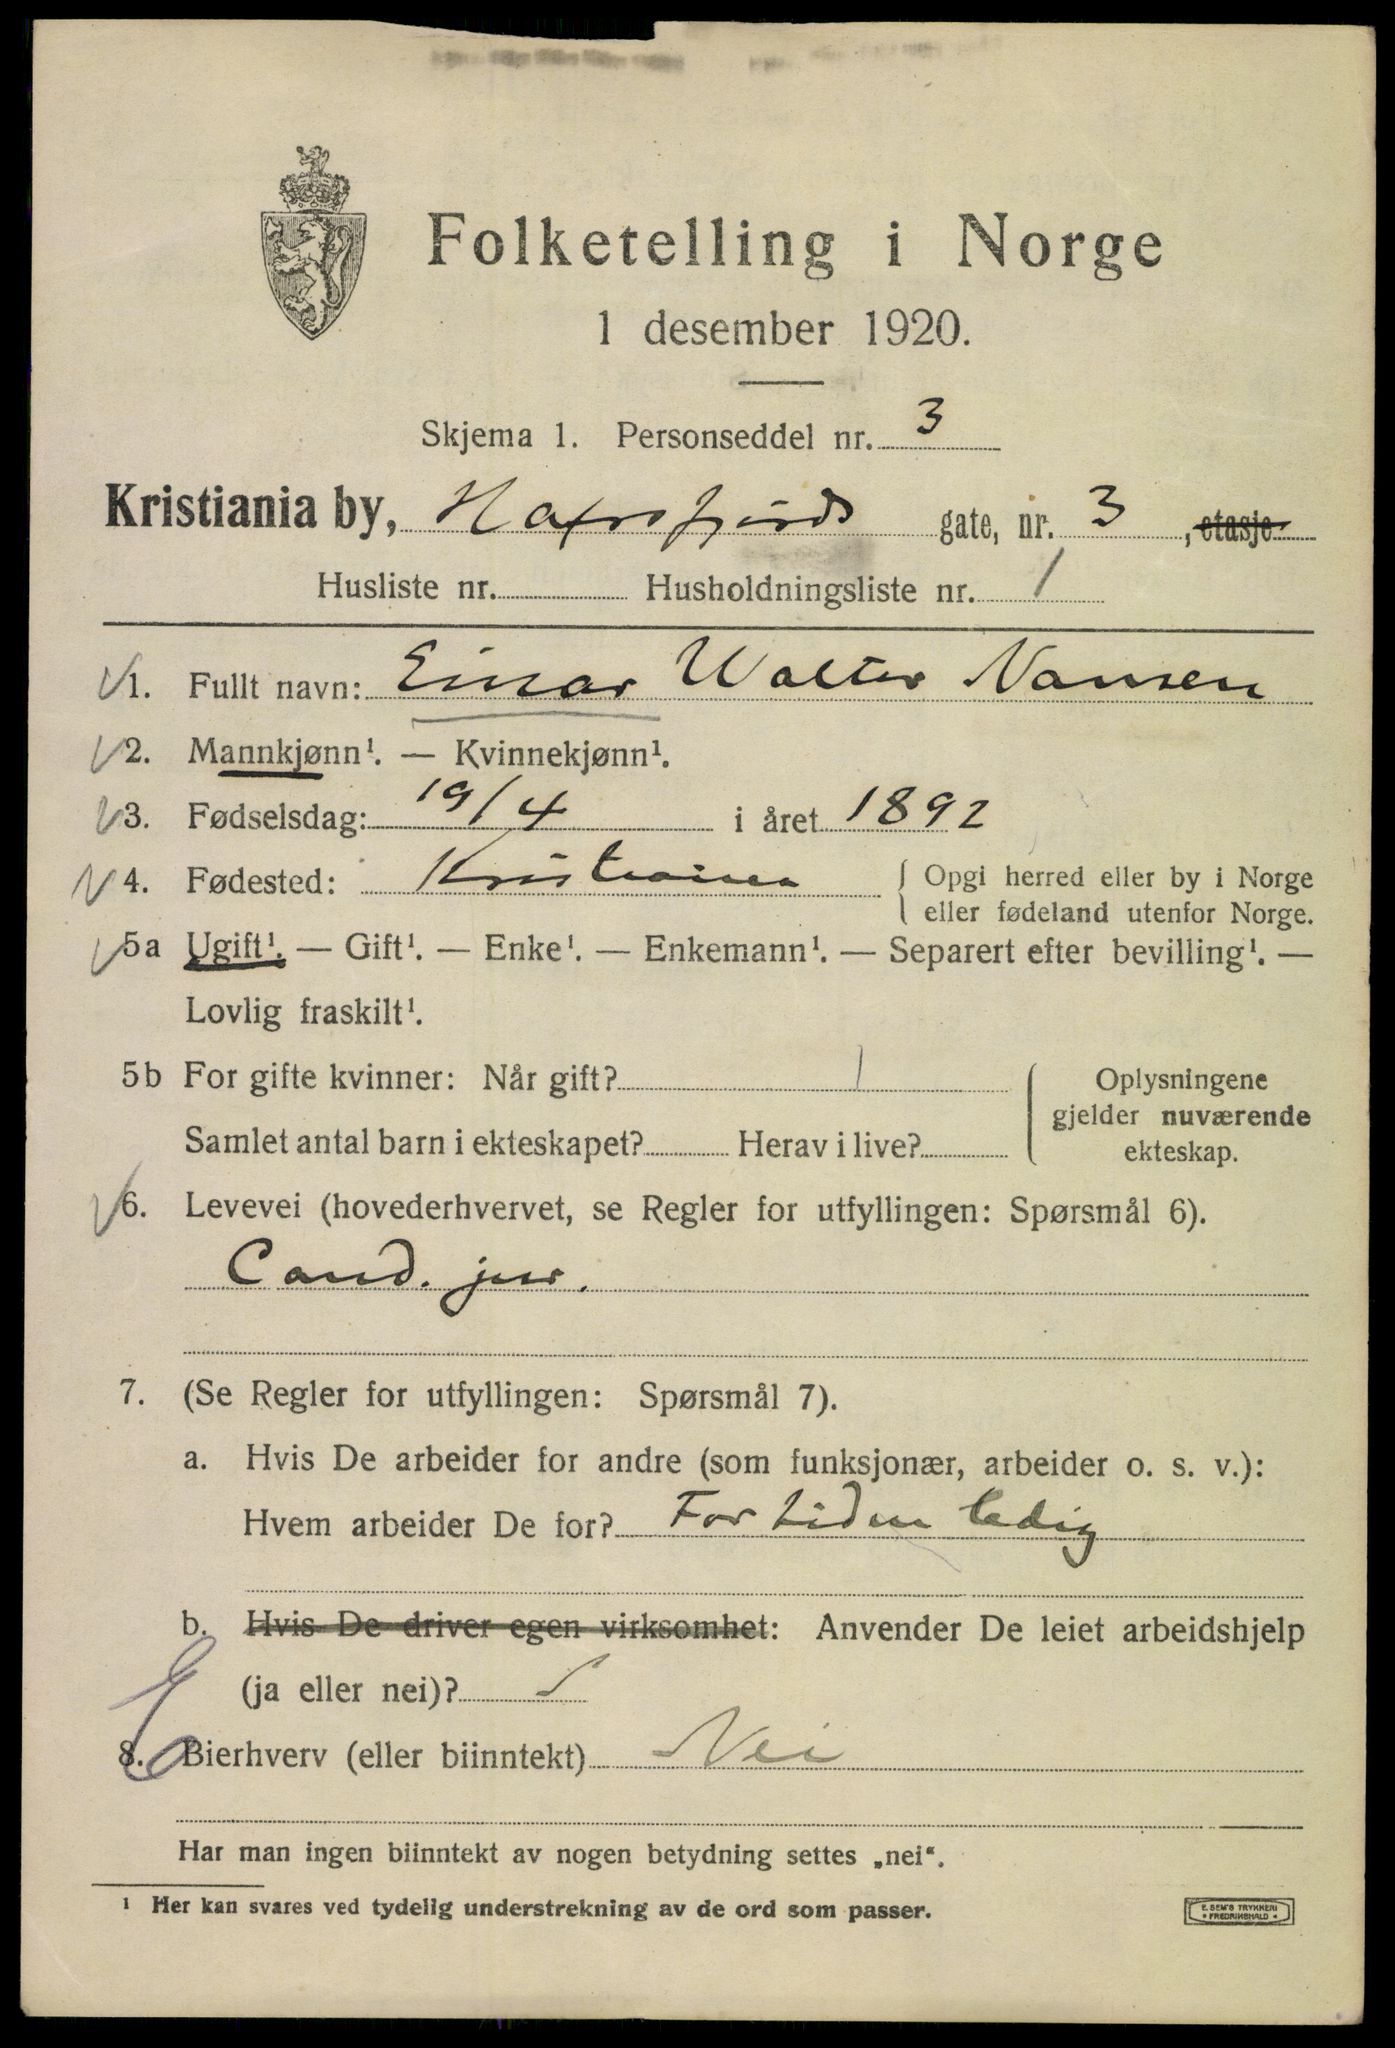 Folketelling i Norge
1 desember 1920.
Skjema 1. Personseddel nr. 3
Kristiania by, Hafrsfjords gate, nr. 3, etasje
Husliste nr. Husholdningsliste nr. 1
1. Fullt navn: Einar Walter Nansen
2. Mannkjønn¹. — Kvinnekjønn¹.
3. Fødselsdag: 19/4 i året 1892
4. Fødested: Kristiania { Opgi herred eller by i Norge
eller fødeland utenfor Norge.
5a Ugift¹. — Gift¹. — Enke¹. — Enkemann¹. — Separert efter bevilling¹. —
Lovlig fraskilt¹.
5b For gifte kvinner: Når gift? / Oplysningene
gjelder nuværende
Samlet antal barn i ekteskapet? Herav i live? ekteskap.
6. Levevei (hovederhvervet, se Regler for utfyllingen: Spørsmål 6).
Cand. jur.
7. (Se Regler for utfyllingen: Spørsmål 7).
a. Hvis De arbeider for andre (som funksjonær, arbeider o. s. v.):
Hvem arbeider De for? For tiden ledig
b. Hvis De driver egen virksomhet: Anvender De leiet arbeidshjelp
(ja eller nei)?
8. Bierhverv (eller biinntekt) Nei
Har man ingen biinntekt av nogen betydning settes „nei“.
¹ Her kan svares ved tydelig understrekning av de ord som passer.
E. SEM'S TRYKKERI
• FREDRIKSHALD •